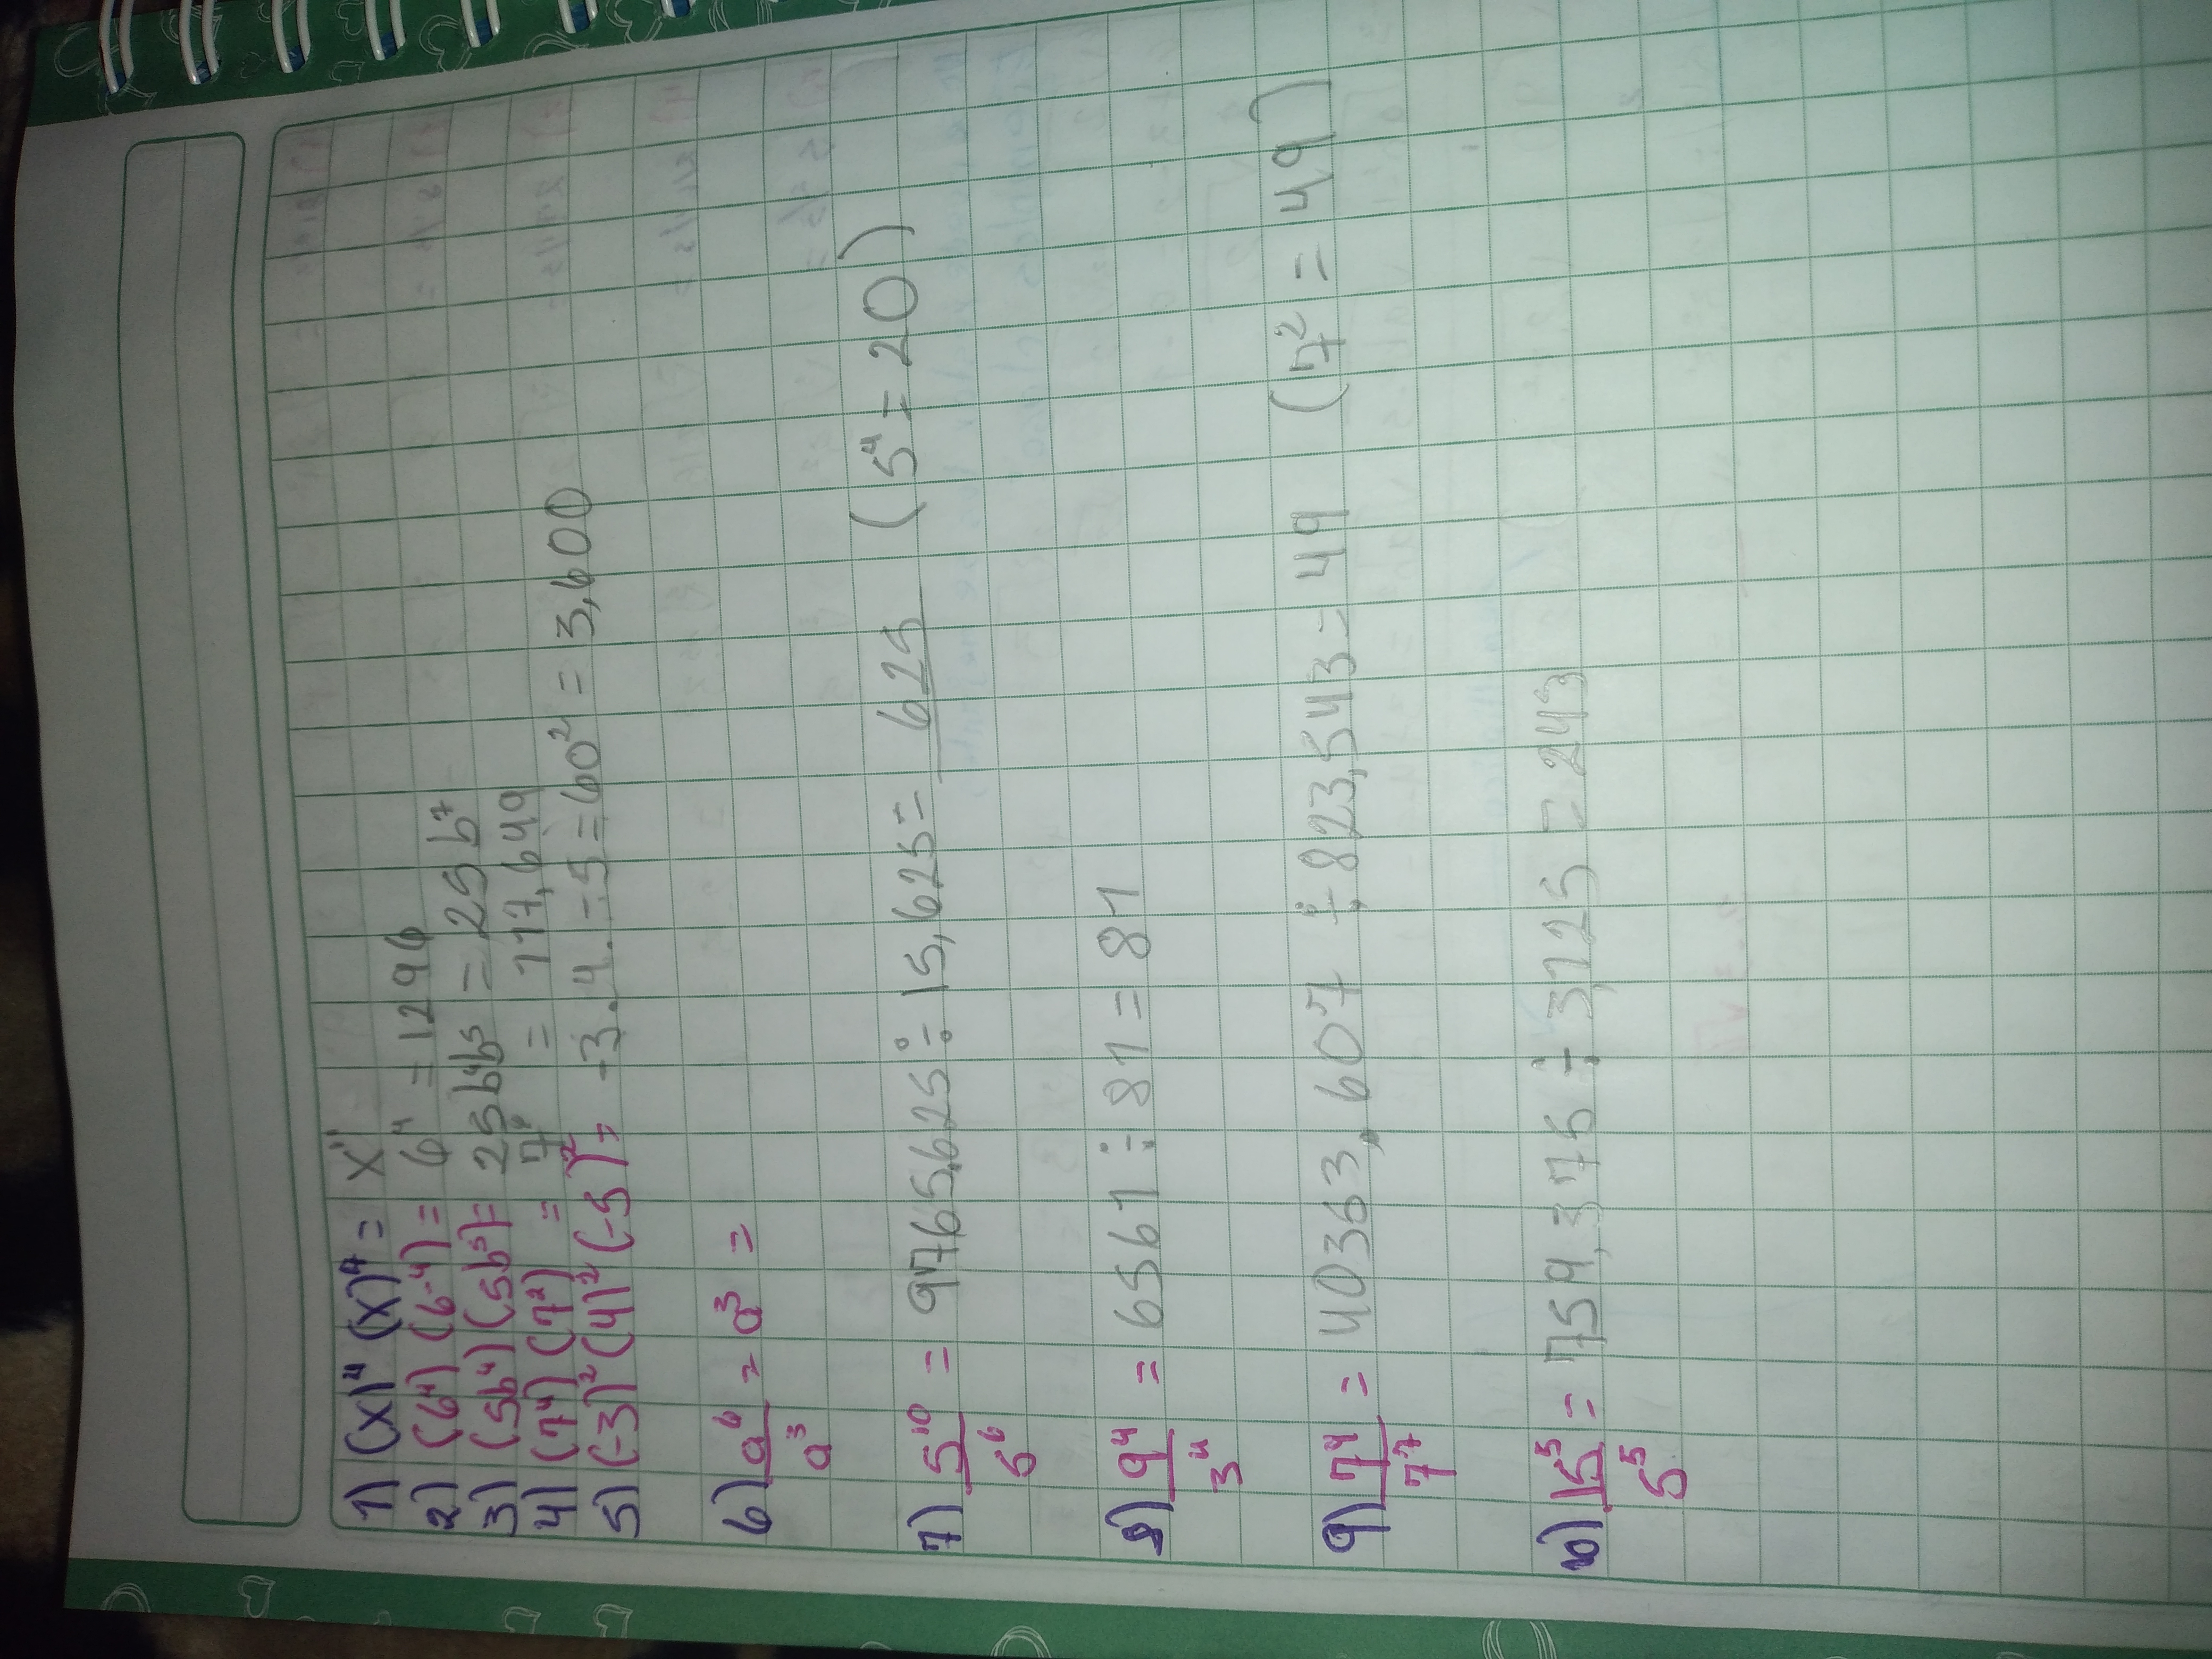 1) (x)⁴ (x)⁷ = x¹¹
2) (6⁴) (6⁻⁴) = 6⁴ = 1296
3) (5b⁴) (5b³) = 25b⁴b⁵ = 25b⁷
4) (7⁴) (7²) = 7⁶ = 117,649
5) (-3)² (4)² (-5)² = -3.4.-5 = 60² = 3,600
6) a⁶/a³ = a³ =
7) 5¹⁰/5⁶ = 9765,625 ÷ 15,625 = 625 (5⁴ = 20)
8) 9⁴/3⁴ = 6561 ÷ 81 = 81
9) 7⁴/7⁷ = 40363,607 ÷ 823,543 = 49 (7² = 49)
10) 15⁵/5⁵ = 759,375 ÷ 3,125 = 243